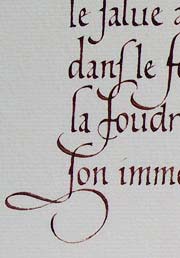 le salue a
dans le fo
la foudr
son imme